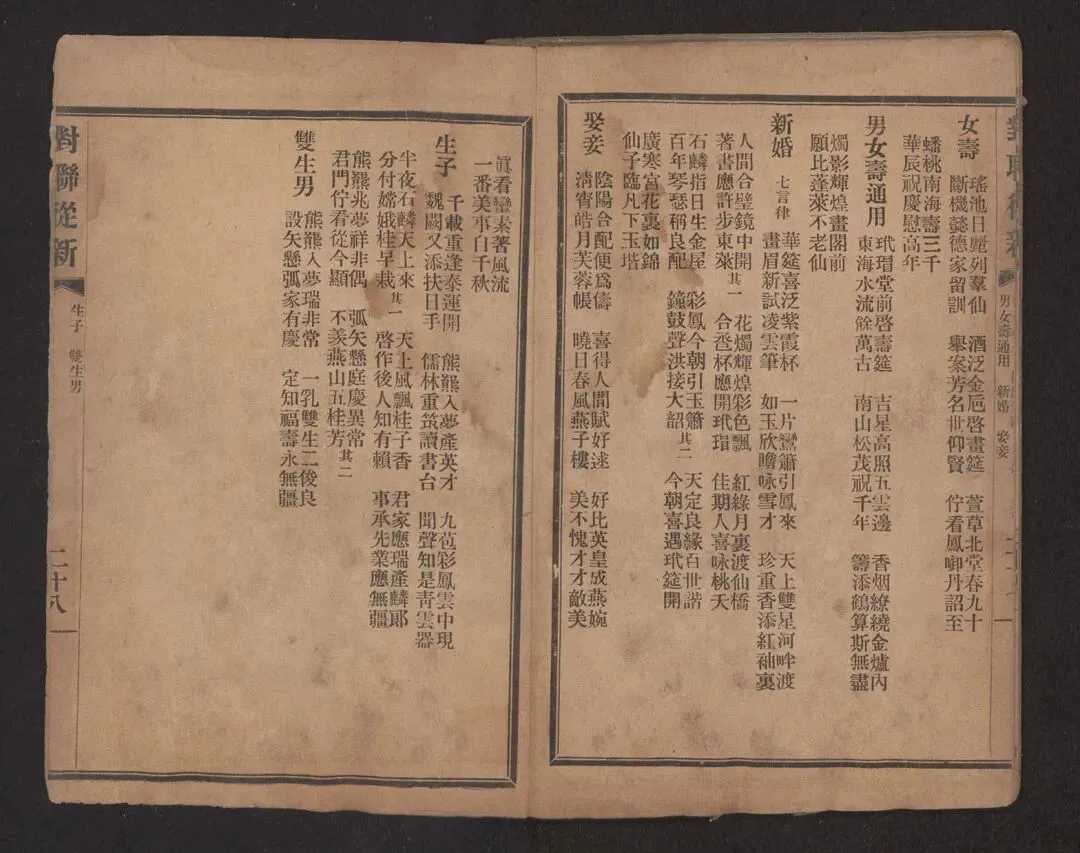 男女壽通用 新婚 娶妾
女壽
瑤池日麗列羣仙 酒泛金卮啓畫筵 萱草北堂春九十
斷機懿德家留訓 舉案芳名世仰賢 佇看鳳啣丹詔至
蟠桃南海壽三千
華辰祝慶慰高年
男女壽通用
玳瑁堂前啓壽筵 吉星高照五雲邊 香烟繚繞金爐內
東海水流餘萬古 南山松茂祝千年 籌添鶴算斯無盡
燭影輝煌畫閣前
願比蓬萊不老仙
新婚 七言律
華筵喜泛紫霞杯 一片鸞簫引鳳來 天上雙星河畔渡
畫眉新試凌雲筆 如玉欣瞻咏雪才 珍重香添紅袖裏
人間合璧鏡中開 其一 花燭輝煌彩色飄 紅綠月裏渡仙橋
著書應許步東萊 合卺杯應開玳瑁 佳期人喜咏桃夭
石麟指日生金屋 彩鳳今朝引玉簫 天定良緣百世諧
百年琴瑟稱良配 鐘鼓聲洪接大韶 其二 今朝喜遇玳筵開
廣寒宮花裏如錦
仙子臨凡下玉堦
娶妾
陰陽合配便爲儔 喜得人間賦好逑 好比英皇成燕婉
淸宵皓月芙蓉帳 曉日春風燕子樓 美不愧才才敵美
眞看蠻素著風流
一番美事白千秋
生子
千載重逢泰運開 熊羆入夢產英才 九苞彩鳳雲中現
魏闕又添扶日手 儒林重筑讀書台 聞聲知是靑雲器
半夜石麟天上來 其一 天上風飄桂子香 君家應瑞產麟郞
分付嫦娥桂早栽 啓作後人知有賴 事承先業應無疆
熊羆兆夢祥非偶 弧矢懸庭慶異常
君門佇看從今顯 不羨燕山五桂芳 其二
雙生男
熊羆入夢瑞非常 一乳雙生二俊良
設矢懸弧家有慶 定知福壽永無疆
對聯從新 生子 雙生男 二十八